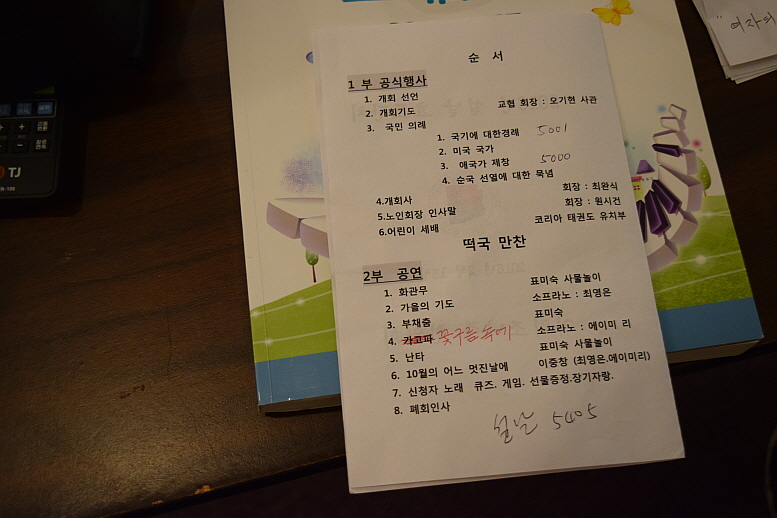 순 서
1 부 공식행사
1. 개회 선언
2. 개회기도 교협 회장 : 오기현 사관
3. 국민 의례
1. 국기에 대한경례 5001
2. 미국 국가
3. 애국가 제창 5000
4. 순국 선열에 대한 묵념
4.개회사 회장 : 최완식
5.노인회장 인사말 회장 : 원시건
6.어린이 세배 코리아 태권도 유치부
떡국 만찬
2부 공연
1. 화관무 표미숙 사물놀이
2. 가을의 기도 소프라노 : 최영은
3. 부채춤 표미숙
4. 가고파 꽃구름 속에 소프라노 : 에이미 리
5. 난타 표미숙 사물놀이
6. 10월의 어느 멋진날에 이중창 (최영은.에이미리)
7. 신청자 노래 퀴즈. 게임. 선물증정.장기자랑.
8. 폐회인사
설날 5405
"여자의
TJ